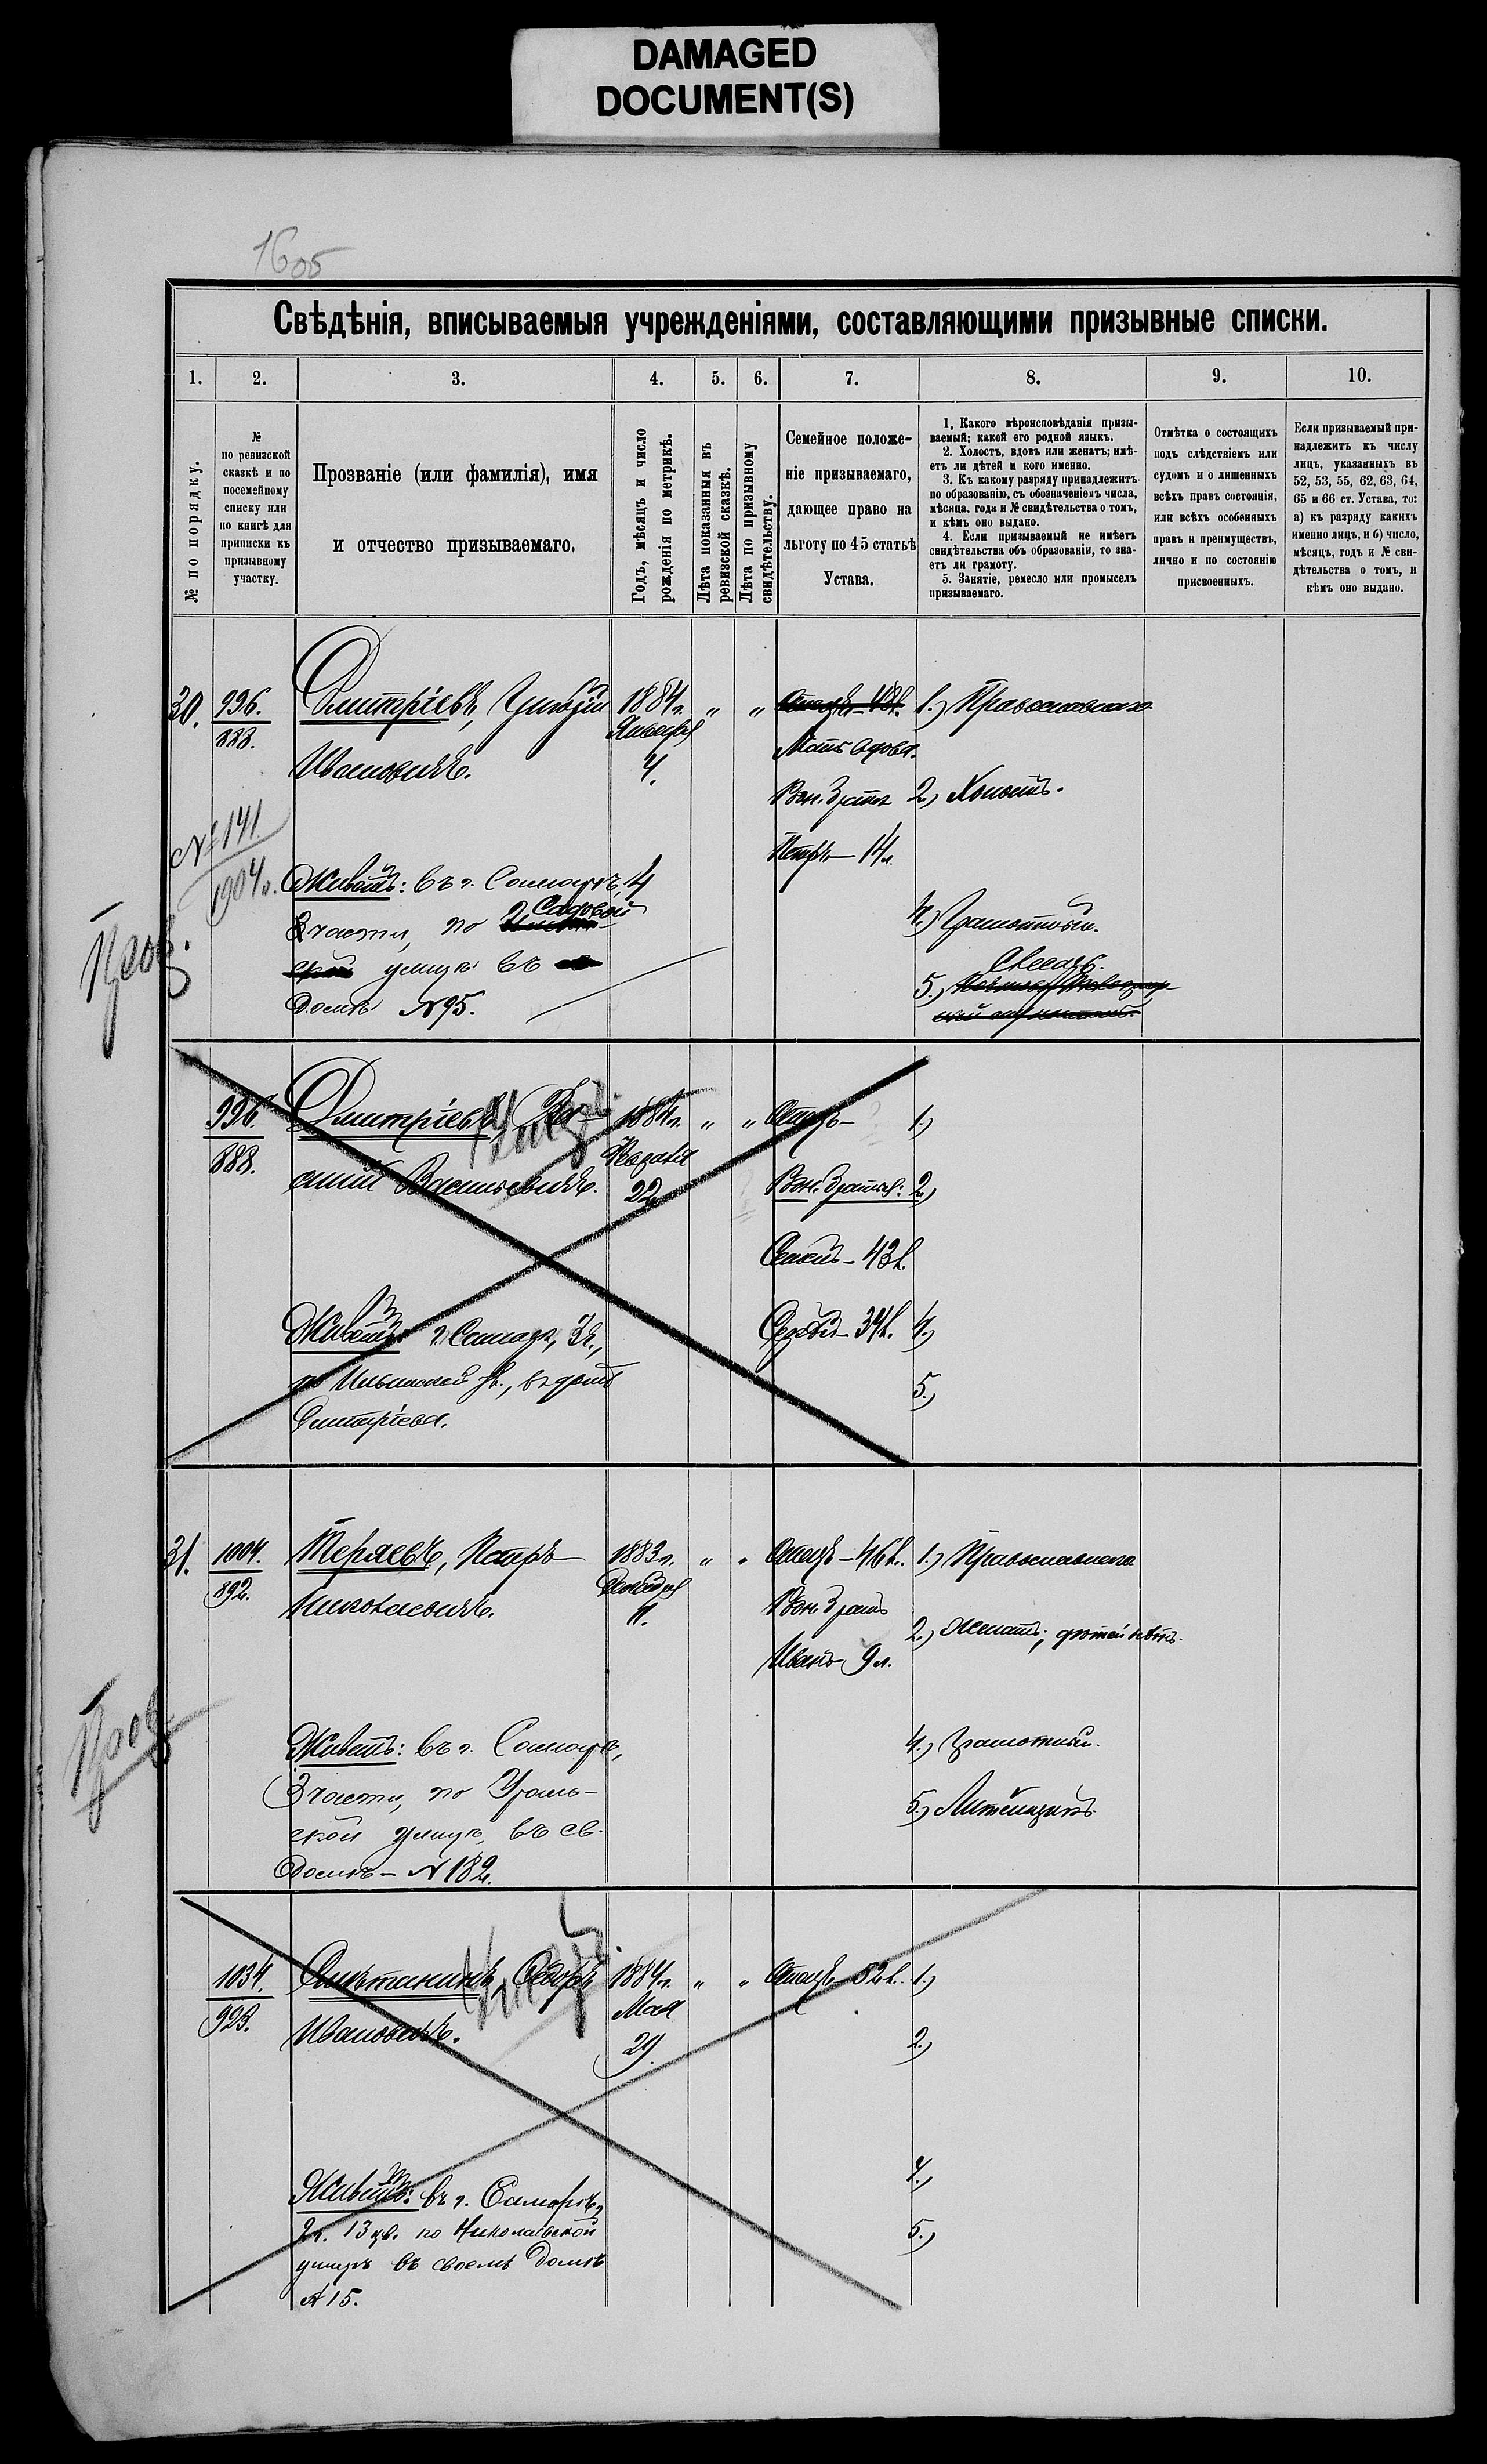 DAMAGED
DOCUMENT(S)
1605
Свѣдѣнія, вписываемыя учрежденіями, составляющими призывные списки.
1. 2. 3. 4. 5. 6. 7. 8. 9. 10.
№ по порядку.
№
по ревизской
сказкѣ и по
посемейному
списку или
по книгѣ для
приписки къ
призывному
участку.
Прозваніе (или фамилія), имя
и отчество призываемаго.
Годъ, мѣсяцъ и число
рожденія по метрикѣ.
Лѣта показанныя въ
ревизской сказкѣ.
Лѣта по призывному
свидѣтельству.
Семейное положе-
ніе призываемаго,
дающее право на
льготу по 45 статьѣ
Устава.
1. Какого вѣроисповѣданія призы-
ваемый; какой его родной языкъ.
2. Холостъ, вдовъ или женатъ; имѣ-
етъ ли дѣтей и кого именно.
3. Къ какому разряду принадлежитъ
по образованію, съ обозначеніемъ числа,
мѣсяца, года и № свидѣтельства о томъ,
и кѣмъ оно выдано.
4. Если призываемый не имѣетъ
свидѣтельства объ образованіи, то зна-
етъ ли грамоту.
5. Занятіе, ремесло или промыселъ
призываемаго.
Отмѣтка о состоящихъ
подъ слѣдствіемъ или
судомъ и о лишенныхъ
всѣхъ правъ состоянія,
или всѣхъ особенныхъ
правъ и преимуществъ,
лично и по состоянію
присвоенныхъ.
Если призываемый при-
надлежитъ къ числу
лицъ, указанныхъ въ
52, 53, 55, 62, 63, 64,
65 и 66 ст. Устава, то:
а) къ разряду какихъ
именно лицъ, и б) число,
мѣсяцъ, годъ и № сви-
дѣтельства о томъ, и
кѣмъ оно выдано.
30. 996. Дмитріевъ, Григорій 1884г. " " Отецъ-48л. 1.) Православнаго
888. Января
Ивановичъ. 4. Мать вдова.
Род. братъ 2.) Холостъ.
Петръ-14л.
№ 141
1904г.
Живетъ: въ г. Самарѣ, 4
части, по Садовой
улицѣ въ
домѣ №95.
4.) Грамотный.
5.) Слесарь.
996. Дмитріевъ, 1884г. " " Отецъ- 1.)
888.
Васильевичъ. 22 Род. братья: 2.)
43л.
Сергѣй-34л. 4.)
5.)
Живетъ г. Самарѣ, 3ч.,
по Ильинской ул., въ домѣ
Дмитріева.
31. 1004. Теряевъ, Петръ 1883г. " " Отецъ-46л. 1.) Православнаго
892. Декабря
Николаевичъ. Род. братъ
Иванъ 9л.
2.) Женатъ; дѣтей нѣтъ.
Живетъ: въ г. Самарѣ,
3 части, по Ураль-
ской улицѣ, въ св.
домѣ-№182.
4.) Грамотный.
5.) Литейщикъ.
1034. Сметанинъ, Ѳедоръ 1884г. " " Отецъ 52л. 1.)
923. Мая
Ивановичъ. 29. 2.)
4.)
5.)
Живетъ: въ г. Самарѣ,
2ч. 13 кв. по Николаевской
улицѣ въ своемъ домѣ
№ 15.